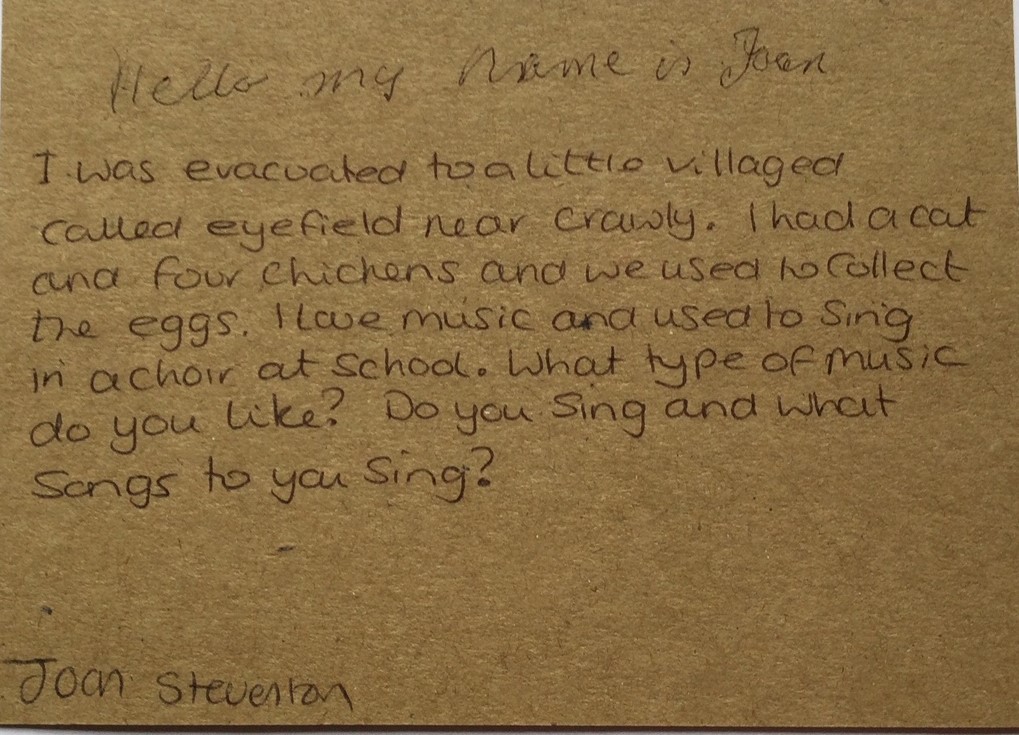 Hello my name is Joan
I was evacuated to a little villaged
called eyefield near crawly. I had a cat
and four chickens and we used to collect
the eggs. I love music and used to sing
in a choir at school. What type of music
do you like? Do you sing and what
songs to you sing?
Joan Steventon